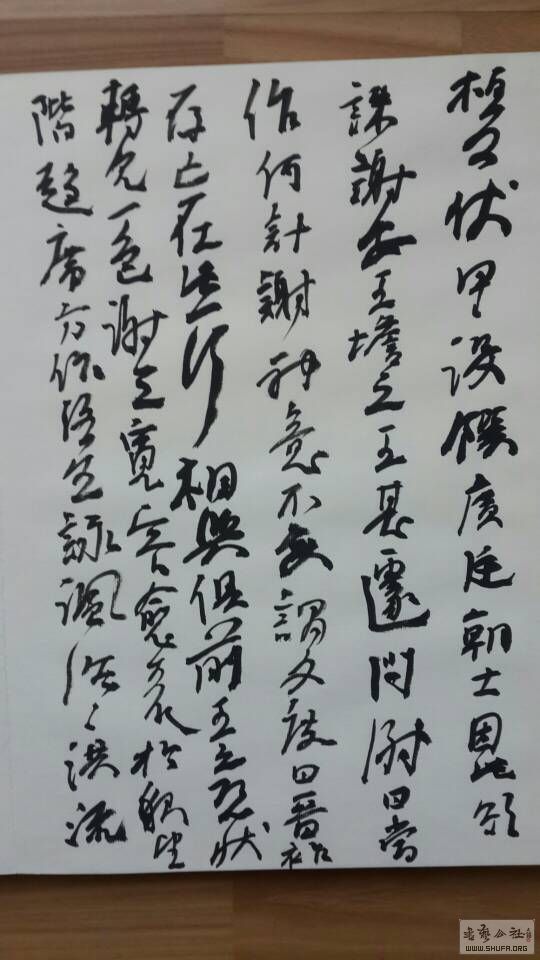 桓公伏甲設饌廣延朝士因此欲
誅謝安王之王甚遽問謝曰當
作何計謝神意不變謂文度曰晉祚
存亡在此行相與俱前王之恐狀
轉見於色謝之寬容愈表於貌望
階趨席方作洛生詠諷浩々洪流
书艺公社
WWW.SHUFA.ORG